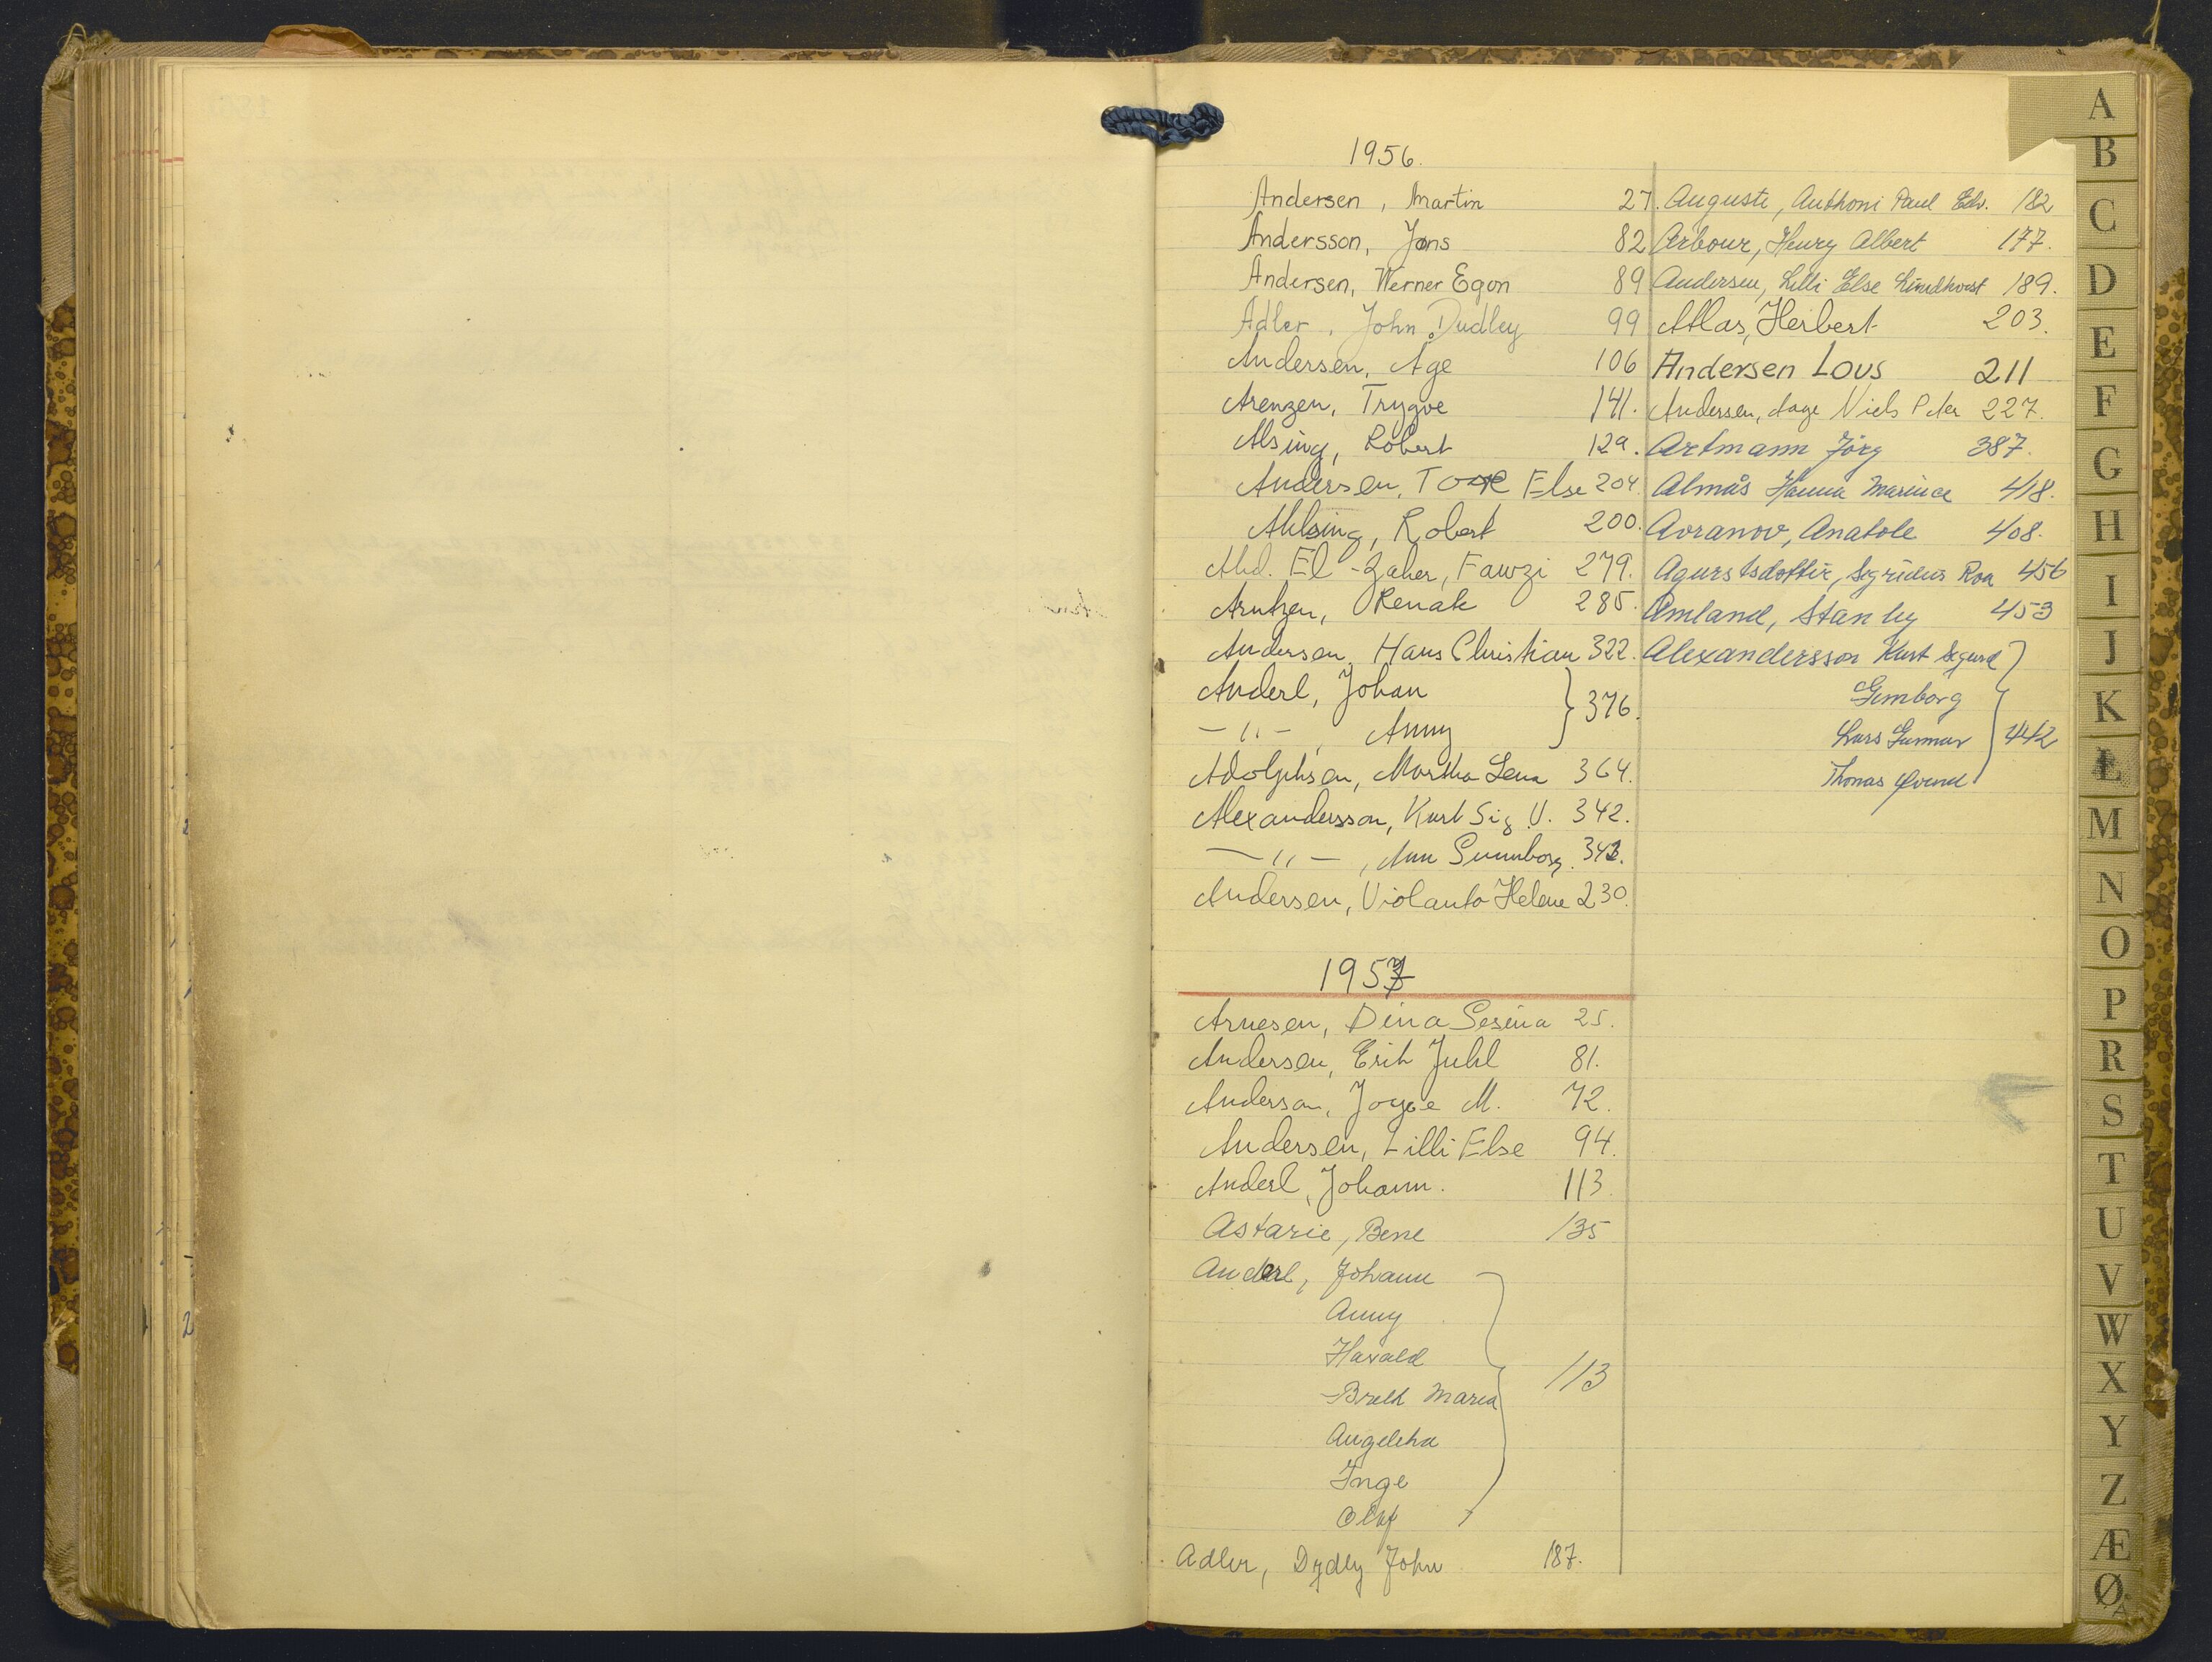 1956.
Andersen, Martin 27.
Andersson, Jøns 82
Andersen, Werner Egon 89
Adler, John Dudley 99
Andersen, Age 106
Arenzen, Trygve 141.
Alsing, Robert 129.
Andersen, Else 204.
Ahlsing, Robert 200.
Abd. El-Zaher, Fawzi 279.
Arntzen, Renate 285.
Andersen, Hans Christian 322.
Anderl, Johan
376.
— " — , Anny
Adolphsen, Martha Lena 364.
Alexandersson, Kurt Sig. V. 342.
— " — , Ann Gunnborg 343.
Andersen, Violanta Helene 230.
1957
Arnesen, Dina Gesina 25.
Andersen, Erik Juhl 81.
Anderson, Joyce M. 72.
Andersen, Lilli Else 94.
Anderl, Johann. 113.
Astarie, Bene 135
Anderl, Johann
Anny
Harald
113
Maria
Angelika
Inge
Olaf
Adler, Dydly John 187.
Auguste, Anthoni Paul Edv. 182
Arbour, Henry Albert 177.
Andersen, Lilli Else Lindhorst 189.
Atlas, Herbert 203.
Andersen Lous 211
Andersen, Aage Niels Peter 227.
Artmann Jörg 387.
Almås Hanna Marince 418.
Avranov, Anatole 408.
Agurstsdottir, Sigridur Roa 456
Amland, Stanley 453
Alexandersson Kurt Segurd
Gemborg
Lars Gunnar 442
Thomas Øvend
A
B
C
D
E
F
G
H
I
J
K
L
M
N
O
P
R
S
T
U
V
W
X
Y
Z
Æ
Ø
Å